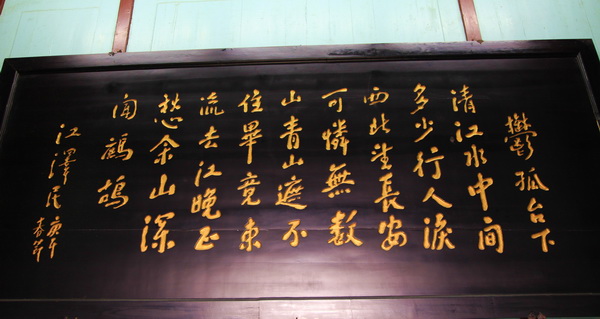 鬱孤台下
清江水中間
多少行人淚
西北望長安
可憐無數
山青山遮不
住畢竟東
流去江晚正
愁余山深
闻鷓鴣
江澤民
庚午
春节